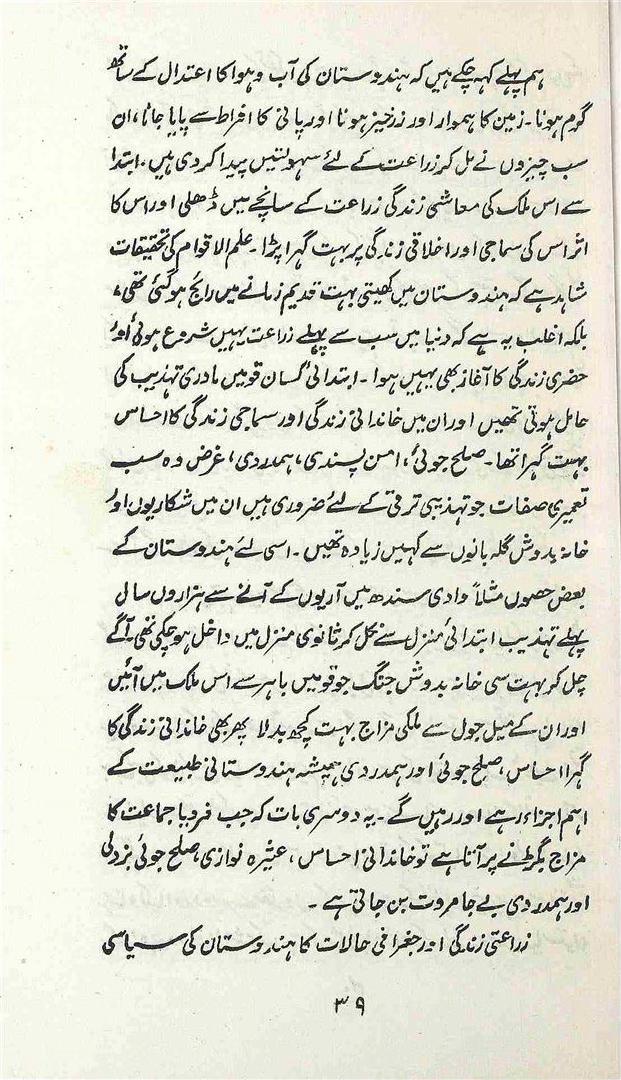 ہم پہلے کہہ چکے ہیں کہ ہندوستان کی آب و ہوا کا اعتدال کے ساتھ
گرم ہونا۔ زمین کا ہموار اور زرخیز ہونا اور پانی کا افراط سے پایا جانا، ان
سب چیزوں نے مل کر زراعت کے لئے سہولتیں پیدا کر دی ہیں۔ ابتدا
سے اس ملک کی معاشی زندگی زراعت کے سانچے میں ڈھلی اور اس کا
اثر اس کی سماجی اور اخلاقی زندگی پر بہت گہرا پڑا۔ علم الاقوام کی تحقیقات
شاہد ہے کہ ہندوستان میں کھیتی بہت قدیم زمانے میں رائج ہو گئی تھی،
بلکہ اغلب یہ ہے کہ دنیا میں سب سے پہلے زراعت یہیں شروع ہوئی اور
حضری زندگی کا آغاز بھی یہیں ہوا۔ ابتدائی کسان قومیں مادری تہذیب کی
حامل ہوتی تھیں اور ان میں خاندانی زندگی اور سماجی زندگی کا احساس
بہت گہرا تھا۔ صلح جوئی، امن پسندی، ہمدردی، غرض وہ سب
تعمیری صفات جو تہذیبی ترقی کے لئے ضروری ہیں ان میں شکاریوں اور
خانہ بدوش گلہ بانوں سے کہیں زیادہ تھیں۔ اسی لئے ہندوستان کے
بعض حصوں مثلاً وادی سندھ میں آریوں کے آنے سے ہزاروں سال
پہلے تہذیب ابتدائی منزل سے نکل کر ثانوی منزل میں داخل ہو چکی تھی۔ آگے
چل کر بہت سی خانہ بدوش جنگ جو قومیں باہر سے اس ملک میں آئیں
اور ان کے میل جول سے ملکی مزاج بہت کچھ بدلا پھر بھی خاندانی زندگی کا
گہرا احساس، صلح جوئی اور ہمدردی ہمیشہ ہندوستانی طبیعت کے
اہم اجزاء رہے اور رہیں گے۔ یہ دوسری بات کہ جب فرد یا جماعت کا
مزاج بگڑنے پر آتا ہے تو خاندانی احساس، عشرہ نوازی، صلح جوئی بزدلی
اور ہمدردی بے جا مروت بن جاتی ہے۔
زراعتی زندگی اور جغرافی حالات کا ہندوستان کی سیاسی
۳۹